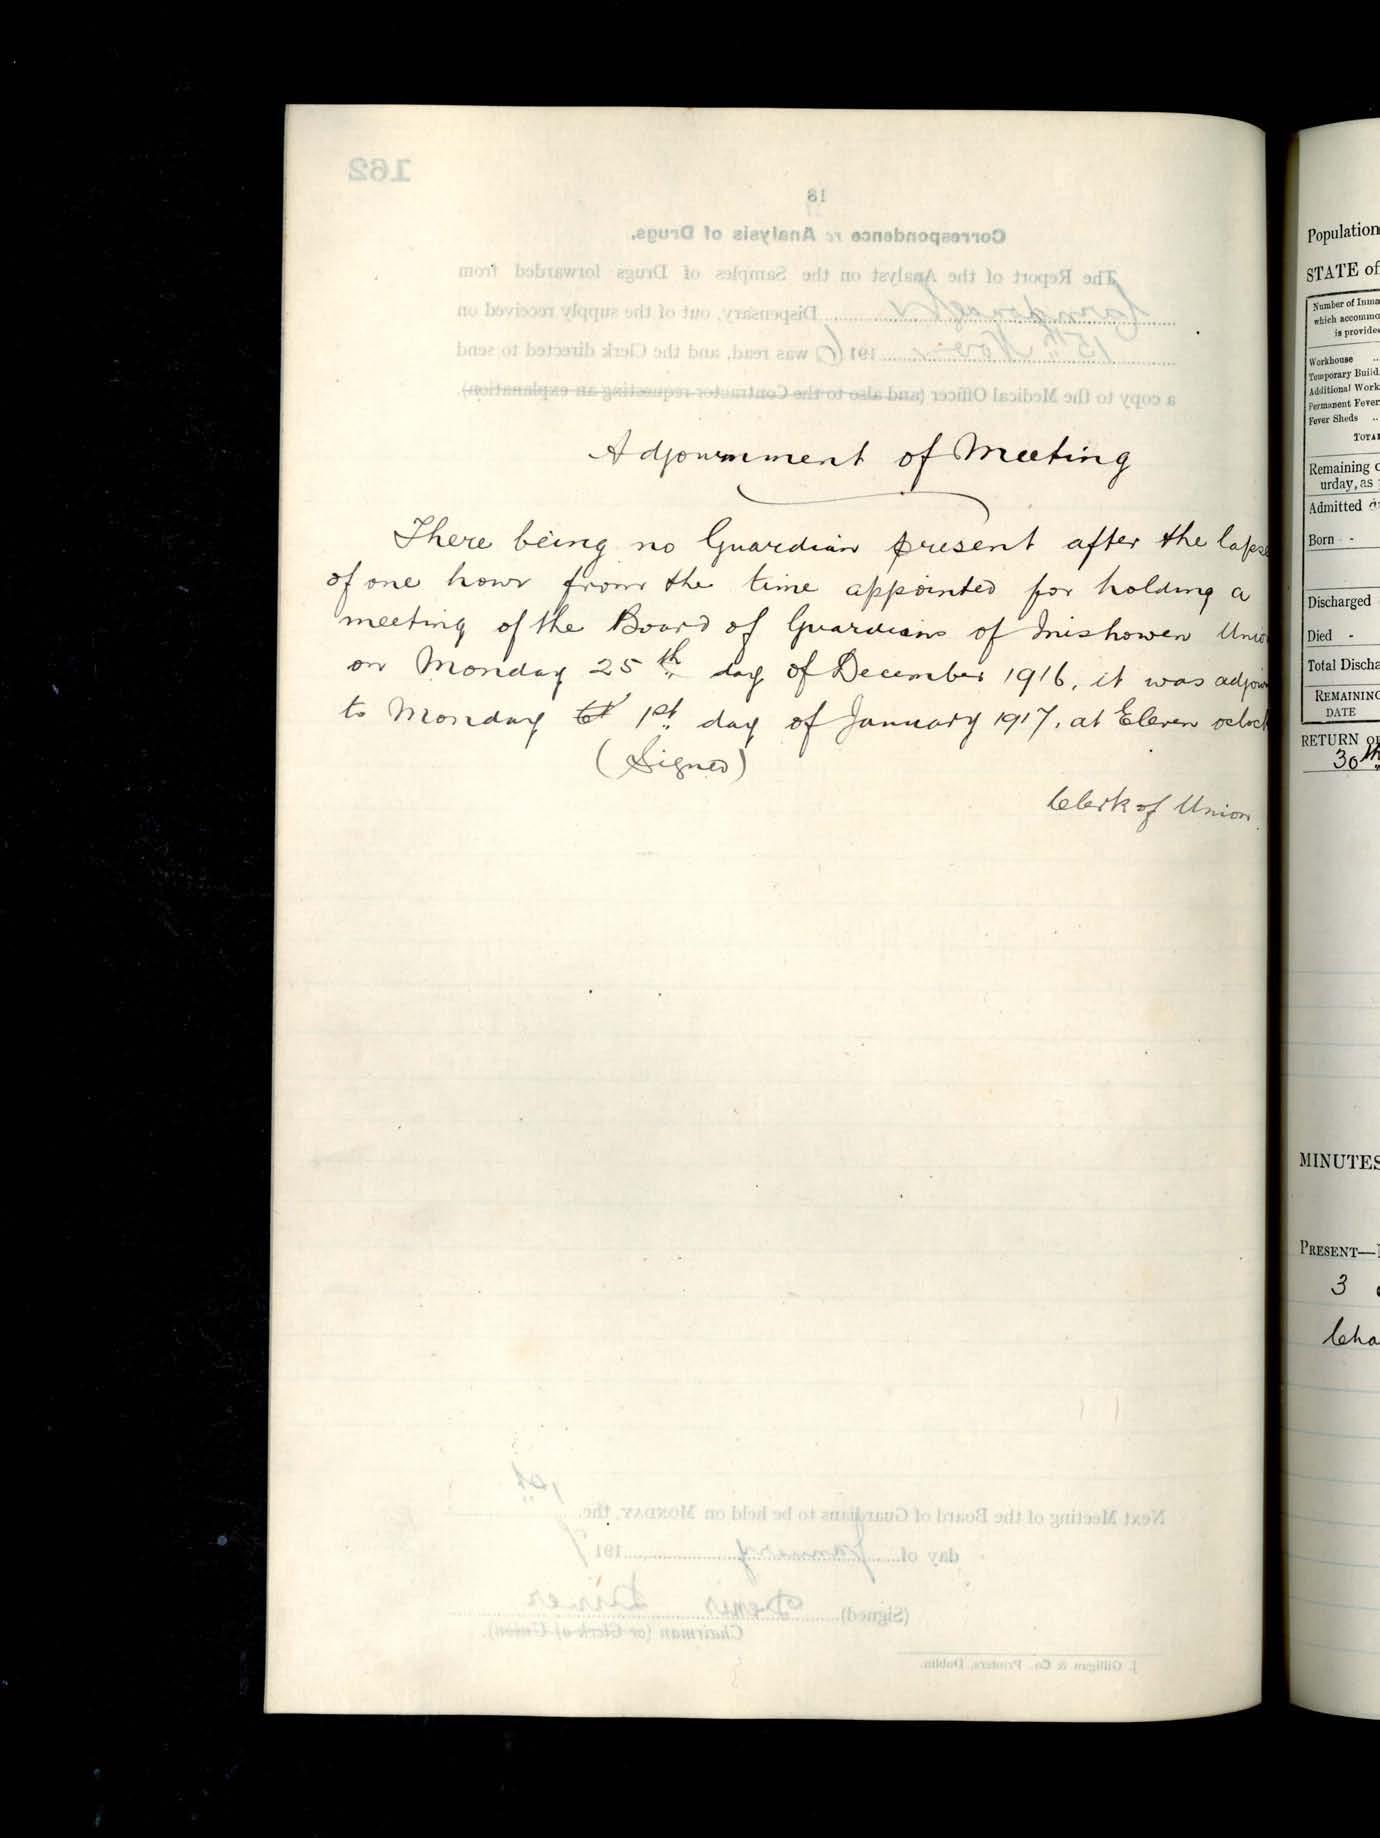 162
18
Correspondence re Analysis of Drugs.
The Report of the Analyst on the Samples of Drugs forwarded from
Carndonagh Dispensary, out of the supply received on
15th Nov 1916 was read, and the Clerk directed to send
a copy to the Medical Officer (and also to the Contractor requesting an explanation).
Adjournment of Meeting
There being no Guardian present after the lapse
of one hour from the time appointed for holding a
meeting of the Board of Guardians of Inishowen Unio
on Monday 25th day of December 1916, it was adjour
to Monday 1st day of January 1917, at Eleven oclock
(Signed)
Clerk of Union.
Next Meeting of the Board of Guardians to be held on MONDAY, the 1st
day of January 1917
(Signed) Denis
Chairman (or Clerk of Union).
J. Gilligan & Co. Printers, Dublin.
Population
STATE of
Number of Inma
which accommo
is provided
Workhouse ..
Temporary Build
Additional Work
Permanent Fever
Fever Sheds ..
TOTAL
Remaining o
urday, as
Admitted
Born -
Discharged
Died -
Total Discha
REMAINING
DATE
RETURN of
30th
MINUTES
PRESENT—
3
Cha